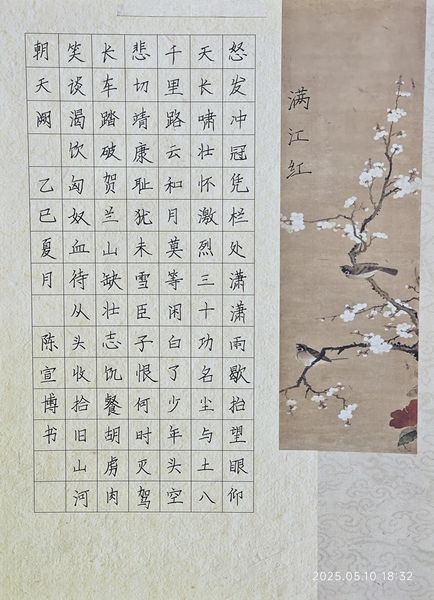 满江红
怒发冲冠凭栏处潇潇雨歇抬望眼仰
天长啸壮怀激烈三十功名尘与土八
千里路云和月莫等闲白了少年头空
悲切靖康耻犹未雪臣子恨何时灭驾
长车踏破贺兰山缺壮志饥餐胡虏肉
笑谈渴饮匈奴血待从头收拾旧山河
朝天阙 乙巳夏月 陈宣博书
2025.05.10 18:32